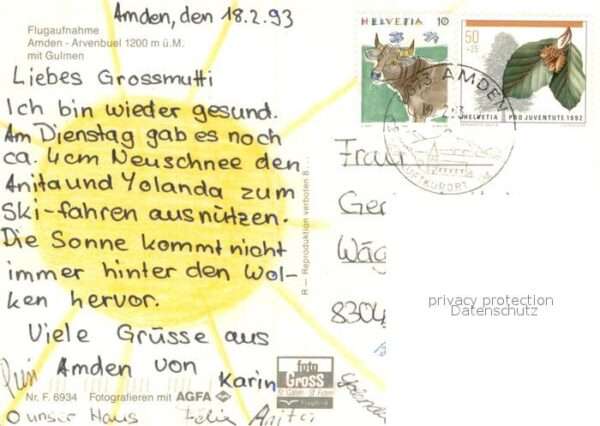 Amden, den 18.2.93
Flugaufnahme
Amden - Arvenbuel 1200 m ü.M.
mit Gulmen
Liebes Grossmutti
Ich bin wieder gesund.
Am Dienstag gab es noch
ca. 4cm Neuschnee den
Anita und Yolanda zum
Ski-fahren ausnützen.
Die Sonne kommt nicht
immer hinter den Wol-
ken hervor.
Viele Grüsse aus
Amden von
Karin
Nr. F. 6934 Fotografieren mit AGFA
O unser Haus Felix Anita
R — Reproduktion verboten 8...
foto
Gross
St. Gallen - St. Fiden
Flugbild
HELVETIA 10
50
+25
HELVETIA PRO JUVENTUTE 1992
8873 AMDEN
LUFTKURORT
Frau
Ger
Wäg
8304
privacy protection
Datenschutz